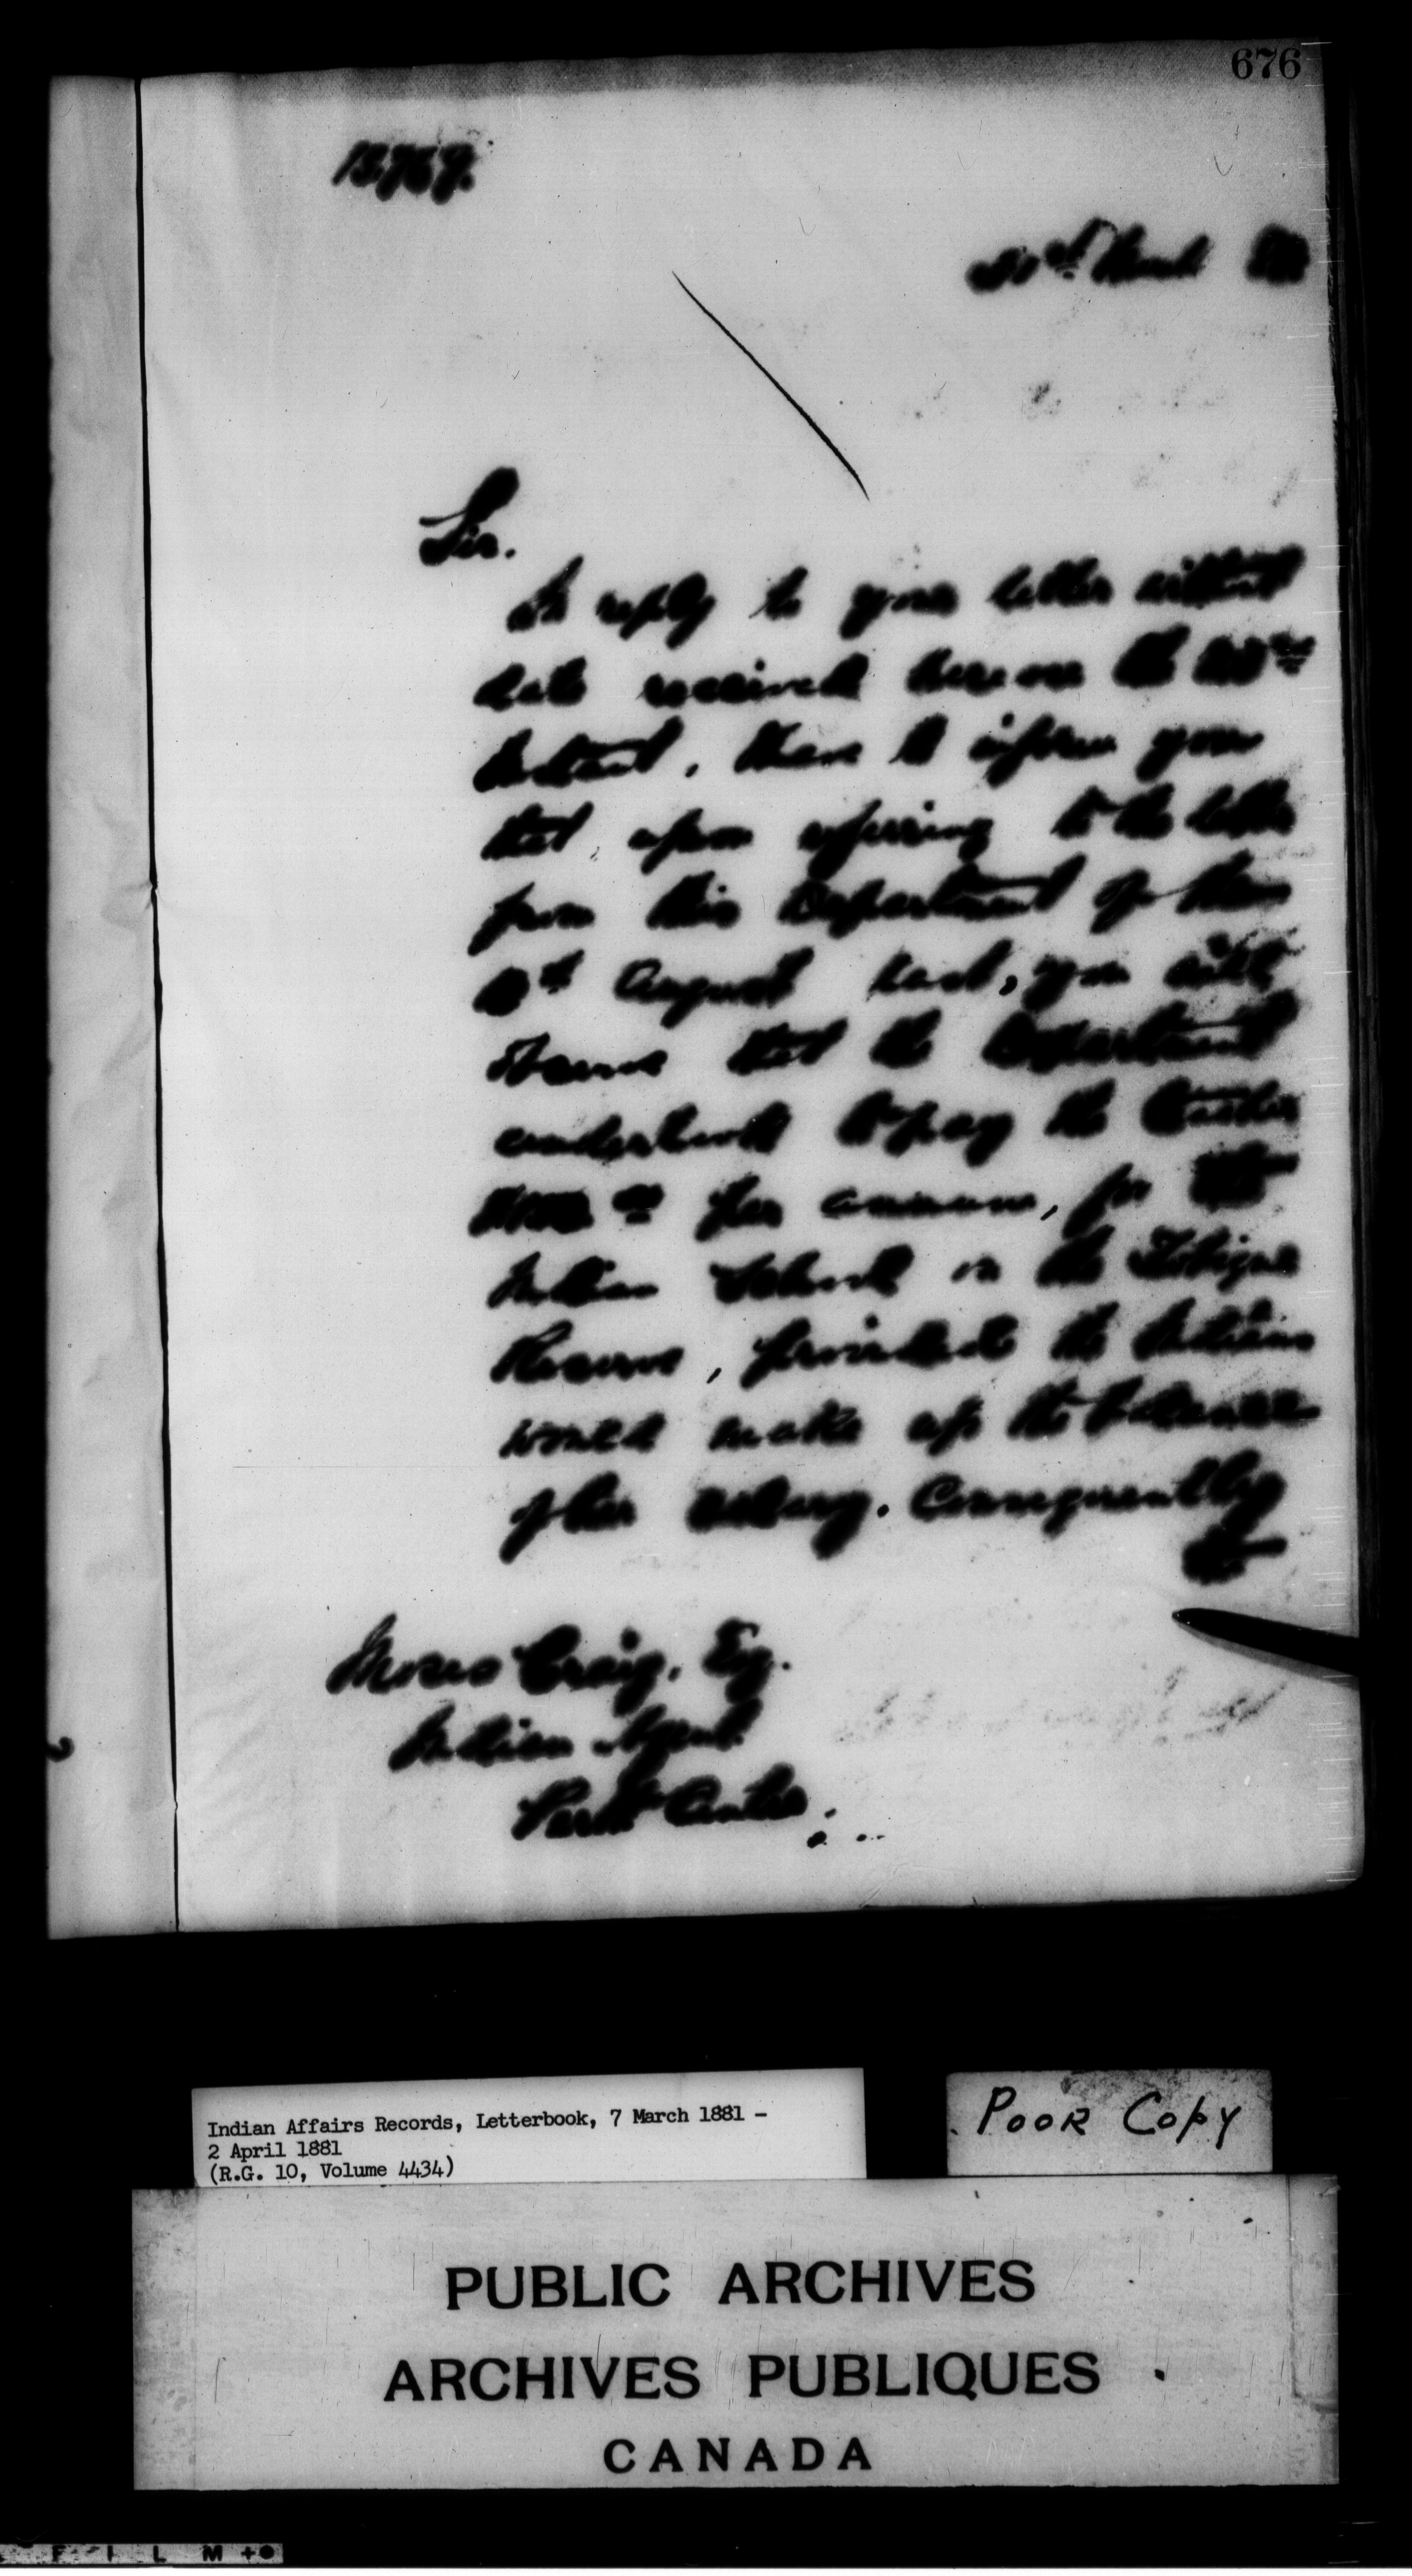 676
Sir.
In reply to your letter without
date received here on the
Instant, I have to inform you
that, upon referring to the letter
from this Department of the
August last, you will
observe that the Department
undertook to pay the teacher
per annum, for the
Indian School on the Tobique
Reserve, provided the Indians
would make up the balance
of her salary. Consequently
Moses Craig, Esq.
Indian Agent
Perth Centre
Indian Affairs Records, Letterbook, 7 March 1881 -
2 April 1881
(R.G. 10, Volume 4434)
Poor Copy
PUBLIC ARCHIVES
ARCHIVES PUBLIQUES
CANADA
F I L M